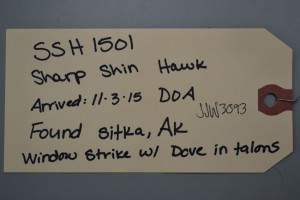 SSH 1501
Sharp Shin Hawk
Arrived: 11.3.15 DOA
JJW3093
Found Sitka, AK
Window Strike w/ Dove in talons